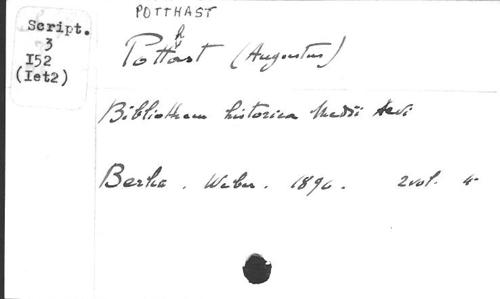 POTTHAST
Script.
3
I52
(Iet2)
Potthast (Augustus)
Bibliotheca historica Medii Aevi
Berlin. Weber. 1896. 2 vol. 4°